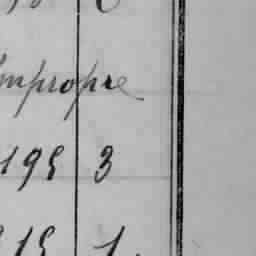 Impropre
195 3
15 1.